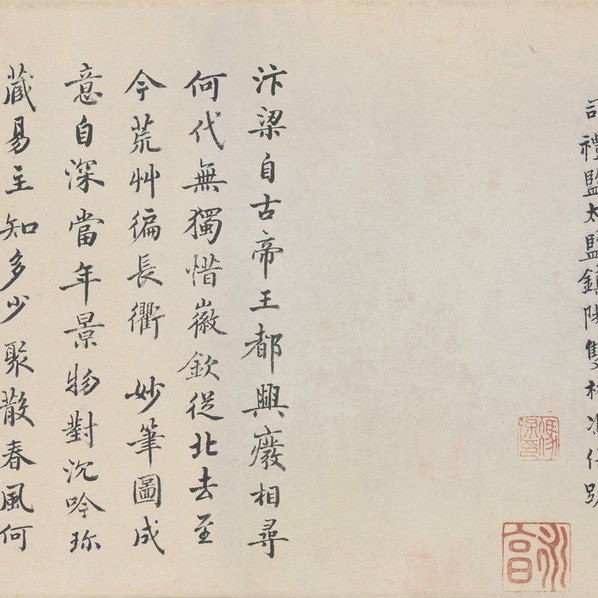 司禮監太監鎮陽雙林馮保跋
汴梁自古帝王都興廢相尋
何代無獨惜徽欽從北去至
今荒艸徧長衢 妙筆圖成
意自深當年景物對沉吟珎
藏易主知多少聚散春風何